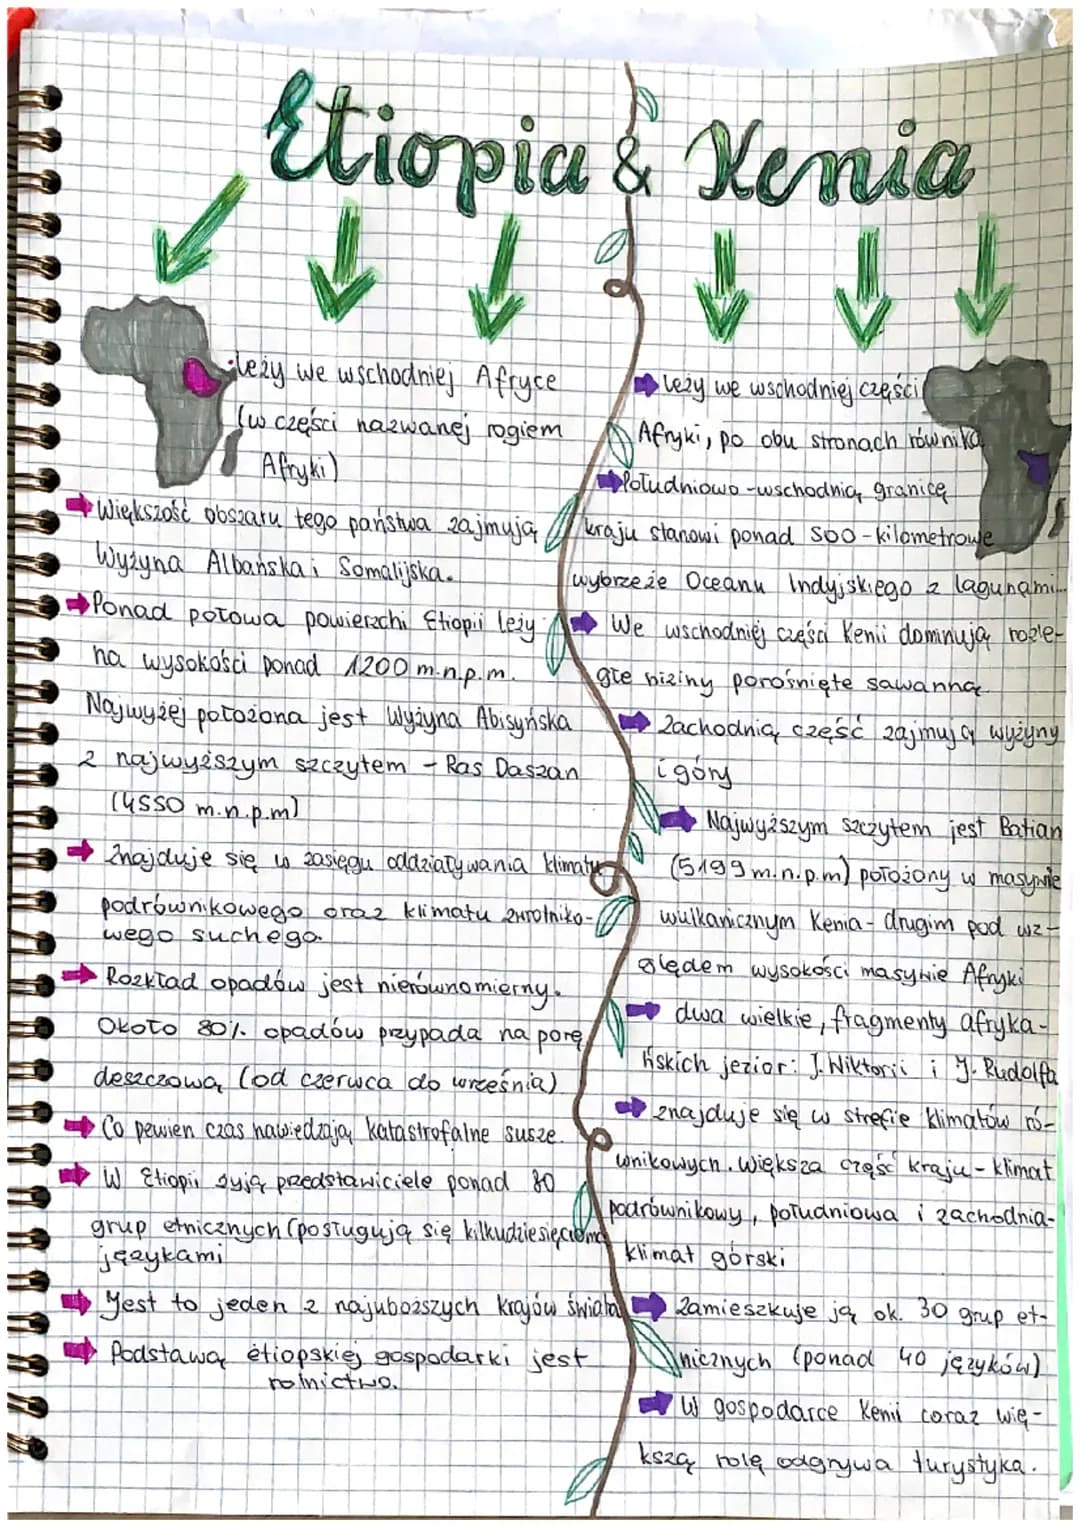 Etiopia & Kenia
leży we wschodniej Afryce
(w części nazwanej rogiem
Afryki)
Większość obszaru tego państwa zajmują
Wyżyna Albańska i Somalijska.
Ponad połowa powierzchi Etiopii leży
na wysokości ponad 1200 m.n.p.m.
Najwyżej położona jest Wyżyna Abisyńska
z najwyższym szczytem - Ras Daszan
(4550 m.n.p.m)
Znajduje się w zasięgu oddziaływania klimatu
podrównikowego oraz klimatu zwrotniko-
wego suchego.
Rozkład opadów jest nierównomierny.
Około 80% opadów przypada na porę
deszczową (od czerwca do września)
Co pewien czas nawiedzają katastrofalne susze.
W Etiopii żyją przedstawiciele ponad 80
grup etnicznych (posługują się kilkudziesięcioma
językami
Jest to jeden z najuboższych krajów świata
Podstawą etiopskiej gospodarki jest
rolnictwo.
leży we wschodniej części
Afryki, po obu stronach równika
Południowo-wschodnią granicę
kraju stanowi ponad 500-kilometrowe
wybrzeże Oceanu Indyjskiego z lagunami...
We wschodniej części Kenii dominują rozle-
głe niziny porośnięte sawanną.
Zachodnią część zajmują wyżyny
i góry
Najwyższym szczytem jest Batian
(5199 m.n.p.m) położony w masywie
wulkanicznym Kenia - drugim pod wz-
ględem wysokości masywie Afryki
dwa wielkie, fragmenty afryka-
ńskich jezior: J. Wiktorii i J. Rudolfa
znajduje się w strefie klimatów ró-
wnikowych. większa część kraju - klimat
podrównikowy, południowa i zachodnia-
klimat górski
Zamieszkuje ją ok. 30 grup et-
nicznych (ponad 40 języków)
W gospodarce Kenii coraz wię-
kszą rolę odgrywa turystyka.